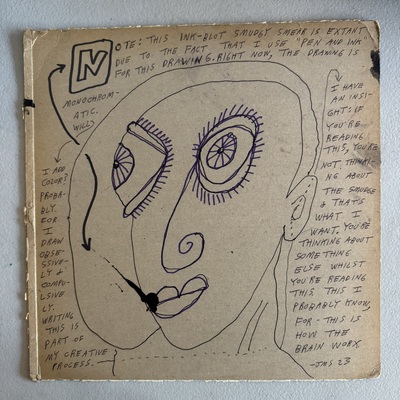 NOTE: THIS INK-BLOT SMUDGY SMEAR IS EXTANT
DUE TO THE FACT THAT I USE "PEN AND INK
FOR THIS DRAWING. RIGHT NOW, THE DRAWING IS
MONOCHROM-
ATIC.
WILL
I ADD
COLOR?
PROBA-
BLY.
FOR
I
DRAW
OBSE-
SSIVE-
LY &
COMPU-
LSIVE
LY.
WRITING
THIS IS
PART OF
MY CREATIVE
PROCESS.
I HAVE
AN INSI-
GHT: IF
YOU'RE
READING
THIS, YOU'RE
NOT THINKI-
NG ABOUT
THE SMUDGE
& THAT'S
WHAT I
WANT. YOU'RE
THINKING ABOUT
SOMETHING
ELSE WHILST
YOU'RE READING
THIS THIS I
PROBABLY KNOW,
FOR - THIS IS
HOW THE
BRAIN WORX
-JMS 23